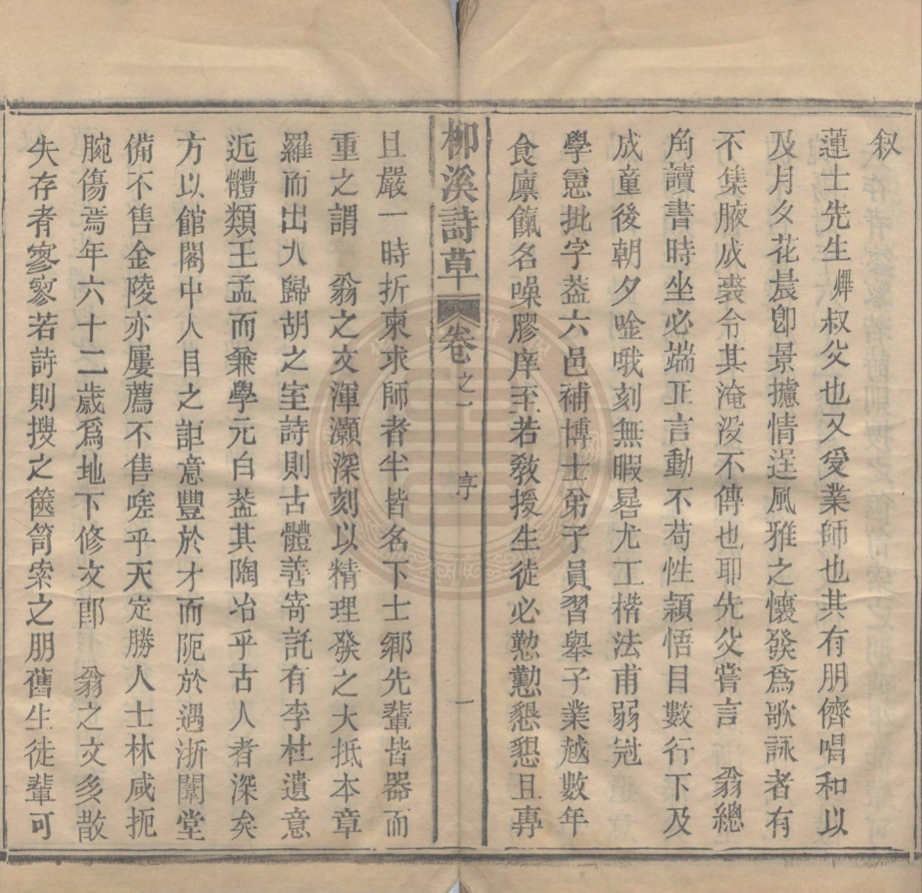 叙
蓮士先生燀叔父也又受業師也其有朋儕唱和以
及月夕花晨卽景攄情逞風雅之懷發爲歌詠者有
不集腋成裘令其淹沒不傳也耶先父嘗言　翁總
角讀書時坐必端正言動不苟性穎悟目數行下及
成童後朝夕唫哦刻無暇晷尤工楷法甫弱冠
學憲批字葢六邑補博士弟子員習舉子業越數年
食廪餼名噪膠庠至若敎援生徒必懃懃懇懇且專
柳溪詩草 卷之一 序 一
且嚴一時折柬求師者半皆名下士鄉先輩皆器而
重之謂　翁之文渾灝深刻以精理發之大抵本章
羅而出入歸胡之室詩則古體善寄託有李杜遺意
近體類王孟而兼學元白葢其陶冶乎古人者深矣
方以館閣中人目之詎意豐於才而阨於遇浙闈堂
備不售金陵亦屢薦不售嗟乎天定勝人士林咸扼
腕傷焉年六十二歲爲地下修文郎　翁之文多散
失存者寥寥若詩則搜之篋笥索之朋舊生徒輩可